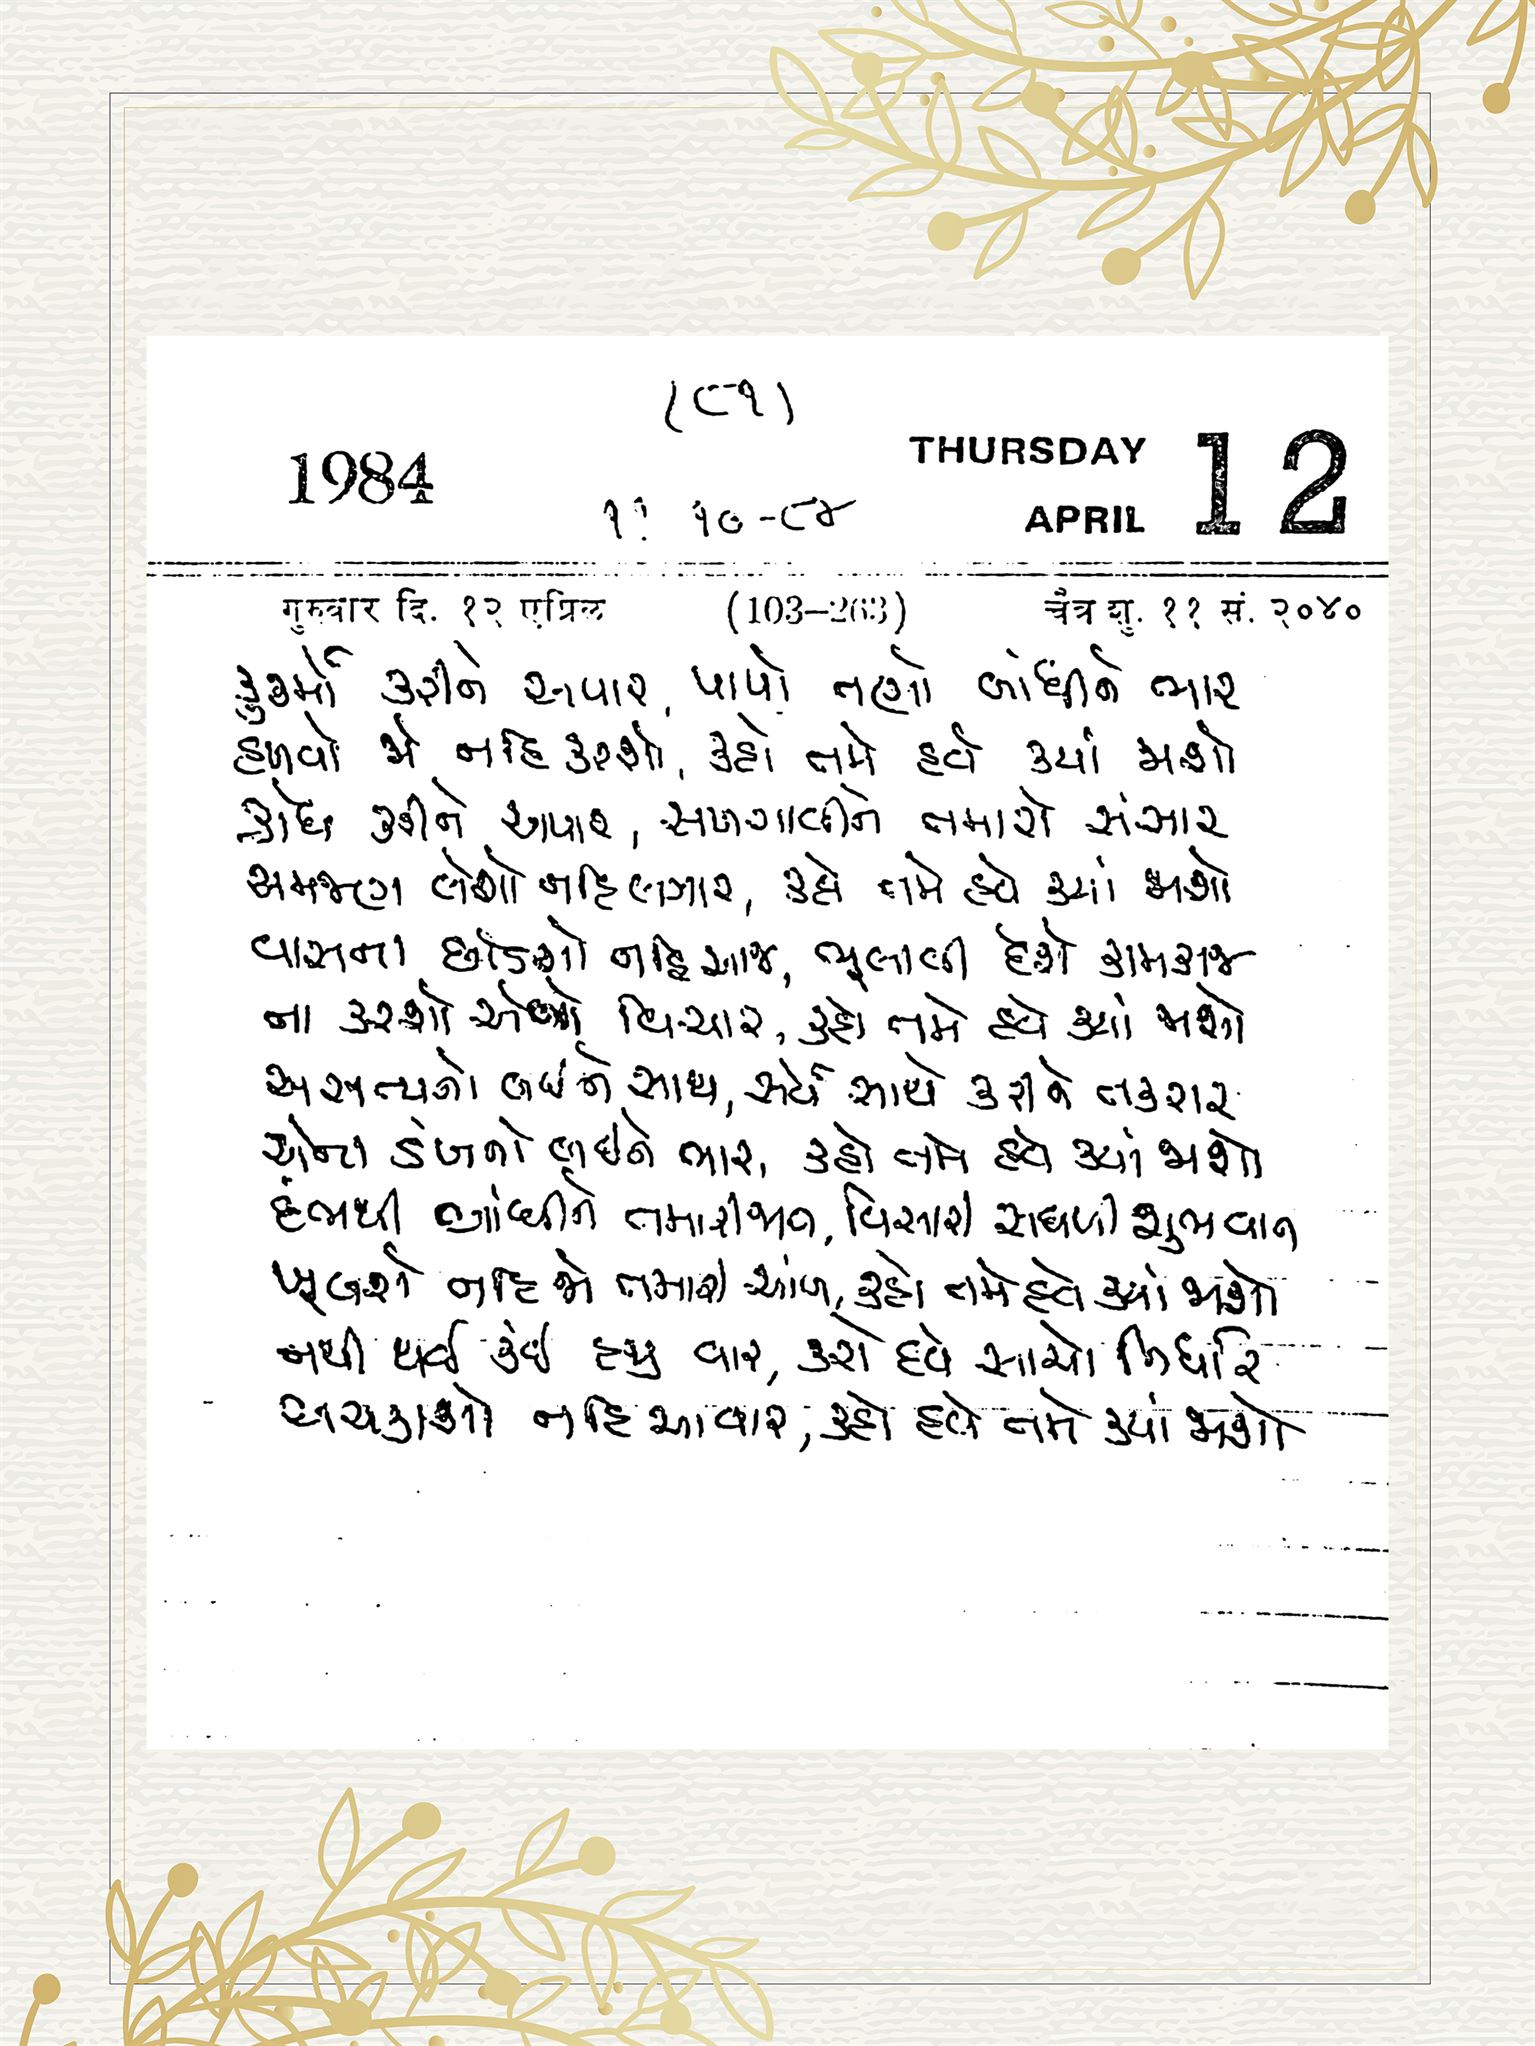 (૮૧)
1984
THURSDAY
APRIL
12
૧૧ ૧૦-૮૪
गुरुवार दि. १२ एप्रिल (103–263) चैत्र शु. ११ सं. २०४०
કુકર્મો કરીને અપાર, પાપો તણો બાંધીને ભાર
હળવો જો નહિ કરશો, કહો તમે હવે ક્યાં જાશો
ક્રોધ કરીને અપાર, સળગાવીને તમારો સંસાર
સમજણ લેશો નહિ લગાર, કહો તમે હવે ક્યાં જાશો
વાસના છોડશો નહિ આજ, ભૂલાવી દેશે કામકાજ
ના કરશો એનો વિચાર, કહો તમે હવે ક્યાં જાશો
અસત્યનો લઇને સાથ, સર્વ સાથે કરીને તકરાર
એના ડંખનો લઇને ભાર, કહો તમે હવે ક્યાં જાશો
દંભથી બાંધીને તમારી જાત, વિસારી સઘળી શુભ વાત
ખૂલશે નહિ જો તમારી આંખ, કહો તમે હવે ક્યાં જાશો
નથી થઈ કંઈ હજુ વાર, કરો હવે સાચો નિર્ધાર
અચકાશો નહિ આ વાર, કહો હવે તમે ક્યાં જાશો